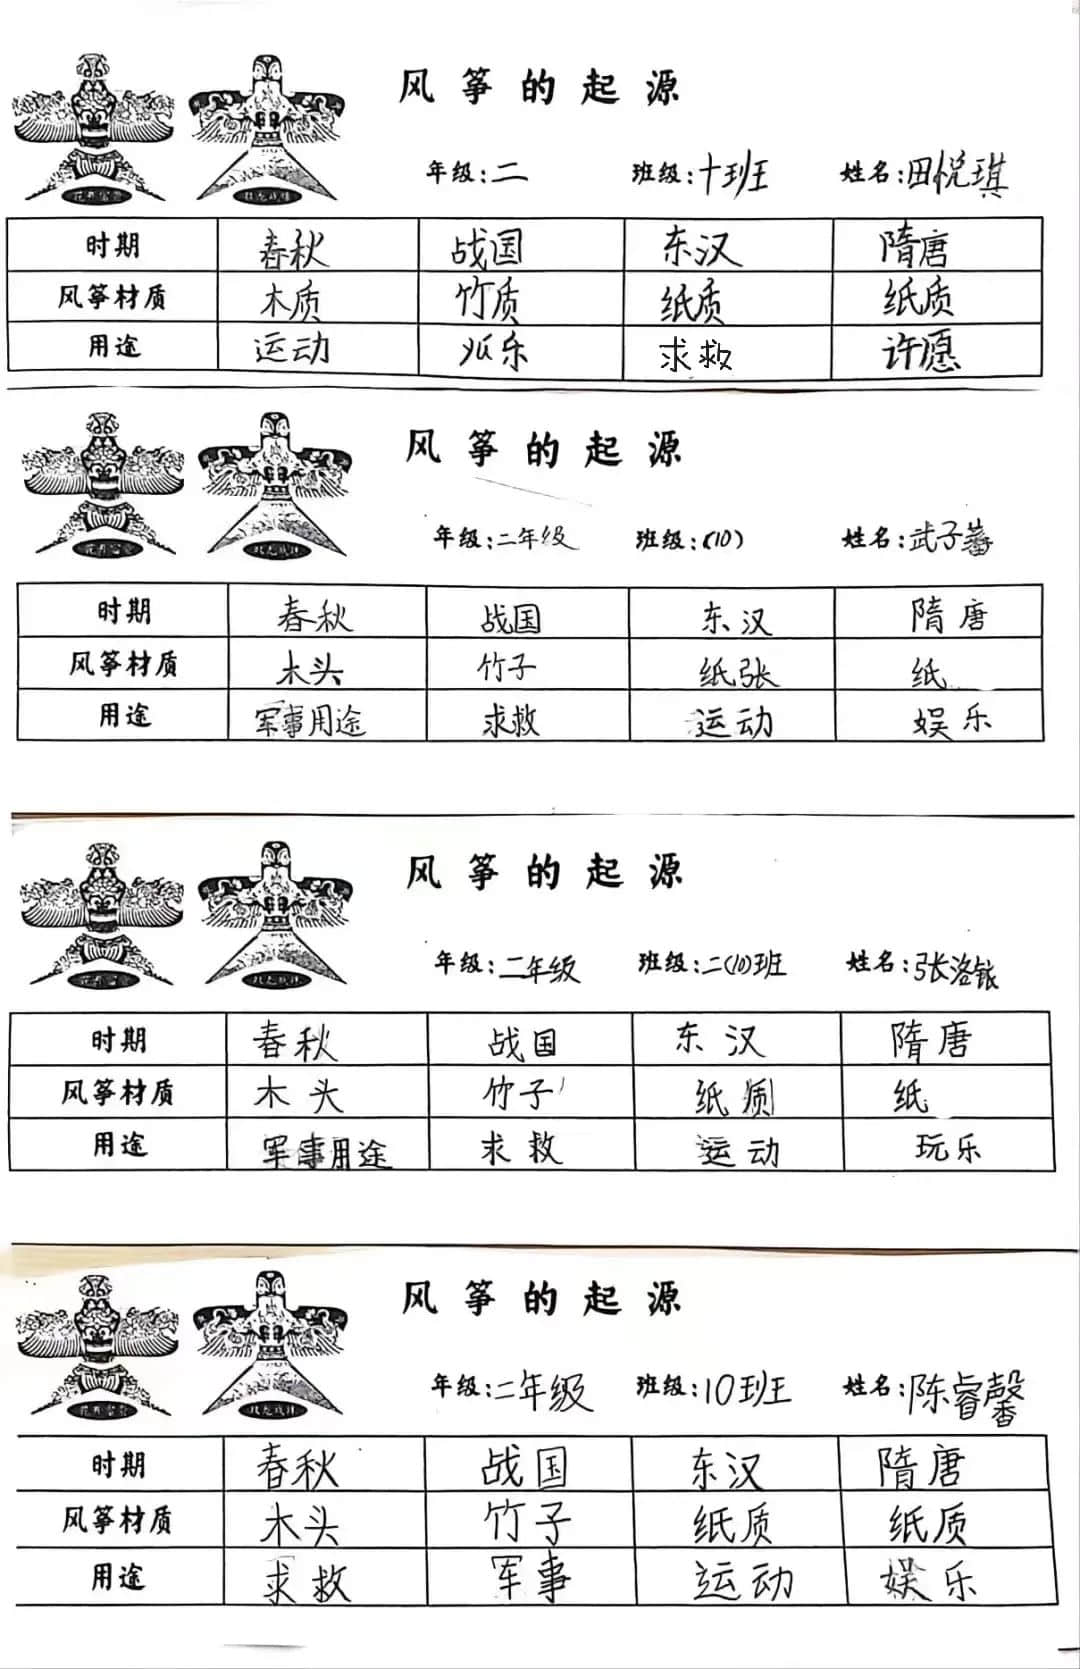 风筝的起源
年级：二 班级：十班 姓名：田悦琪
时期 春秋 战国 东汉 隋唐
风筝材质 木质 竹质 纸质 纸质
用途 运动 乐 求救 许愿
风筝的起源
年级：二年级 班级：(10) 姓名：武子蕃
时期 春秋 战国 东汉 隋唐
风筝材质 木头 竹子 纸张 纸
用途 军事用途 求救 运动 娱乐
风筝的起源
年级：二年级 班级：二(10)班 姓名：张洛
时期 春秋 战国 东汉 隋唐
风筝材质 木头 竹子 纸质 纸
用途 军事用途 求救 运动 玩乐
风筝的起源
年级：二年级 班级：10班 姓名：陈睿馨
时期 春秋 战国 东汉 隋唐
风筝材质 木头 竹子 纸质 纸质
用途 求救 军事 运动 娱乐